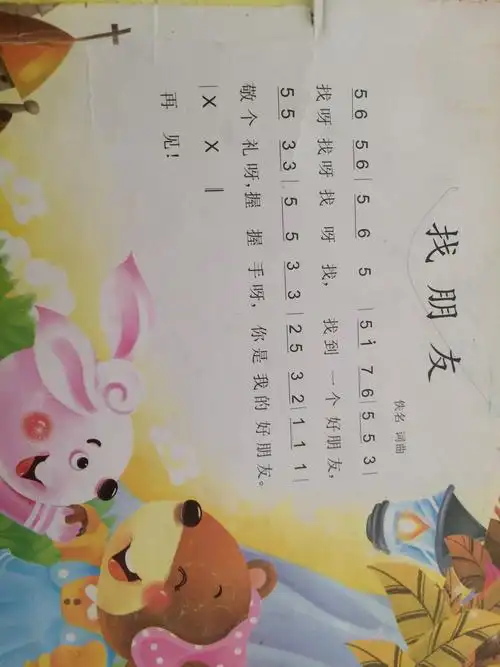 找朋友
佚名 词曲
5 6 5 6 | 5 6 5 | 5 i 7 6 | 5 5 3 |
找呀找呀找呀找，找到一个好朋友，
5 5 3 3 | 5 5 3 3 | 2 5 3 2 | 1 1 1 |
敬个礼呀，握握手呀，你是我的好朋友。
| X X ‖
再见！